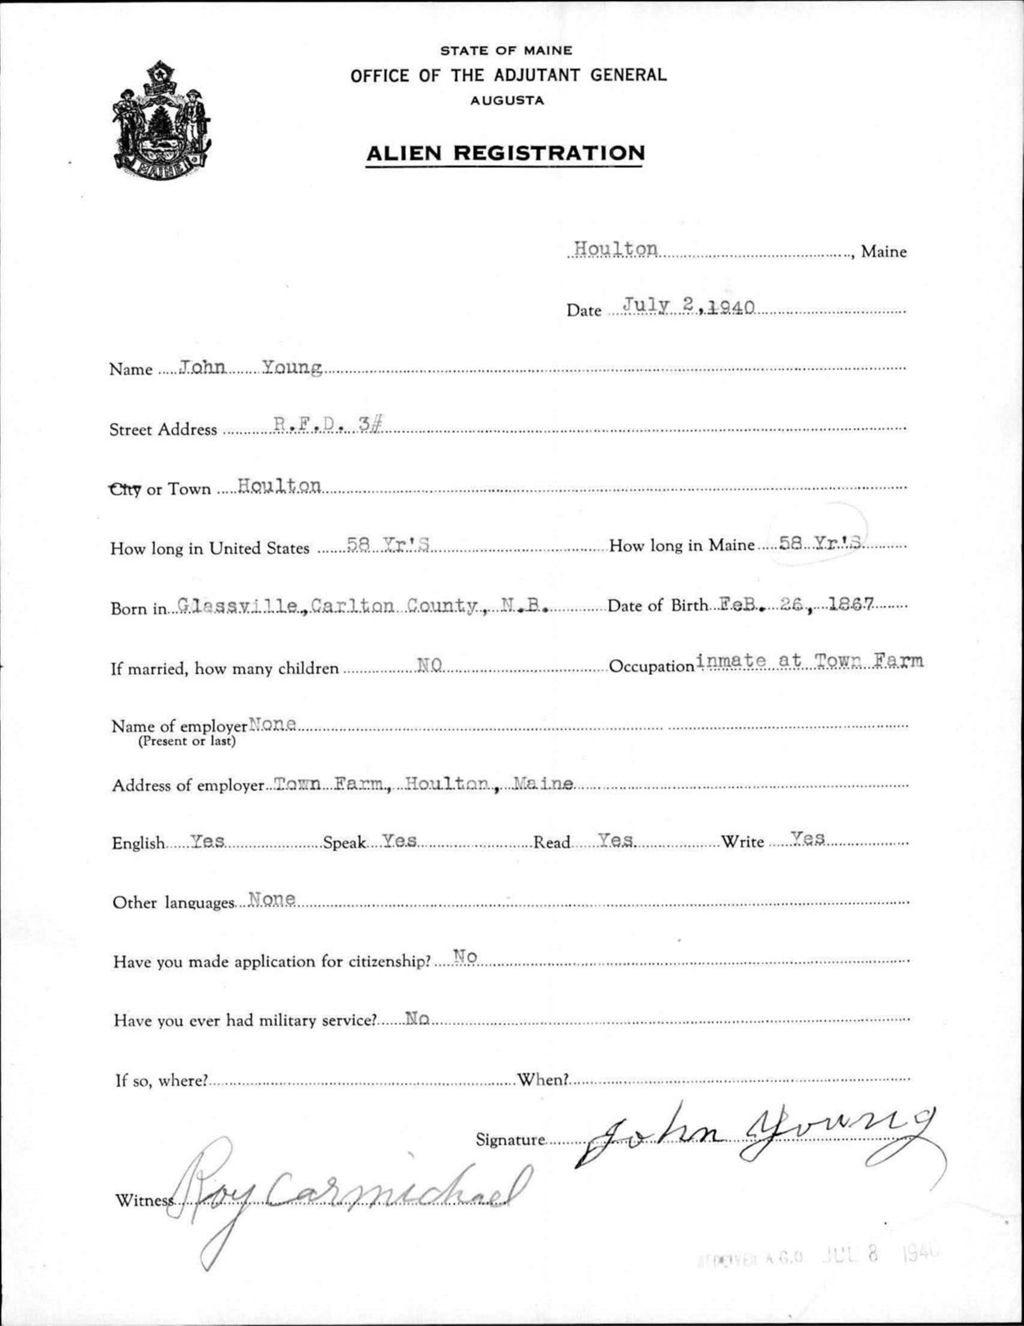 STATE OF MAINE
OFFICE OF THE ADJUTANT GENERAL
AUGUSTA
ALIEN REGISTRATION
MAINE
Houlton, Maine
Date July 2,1940
Name John Young
Street Address R.F.D. 3#
City or Town Houlton
How long in United States 58 Yr'S How long in Maine 58 Yr'S
Born in Glassville, Carlton County, N.B. Date of Birth FeB. 26, 1867
If married, how many children NO Occupation inmate at Town Farm
Name of employer None
(Present or last)
Address of employer Town Farm, Houlton, Maine
English Yes Speak Yes Read Yes Write Yes
Other languages None
Have you made application for citizenship? No
Have you ever had military service? No
If so, where? When?
Signature John Young
Witness Roy Carmichael
RECEIVED A.G.O. JUL 8 1940